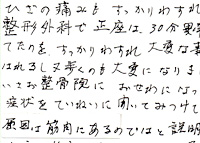 ひざの痛みも すっかりわすれ
整形外科で 正座は、30分異
てたのを、すっかりわすれ 大変な
はれるし 又歩くのも大変になりま
いさお整骨院に おせわになっ
症状を ていねいに 聞いてみつけて
原因は筋肉にあるのではと説明